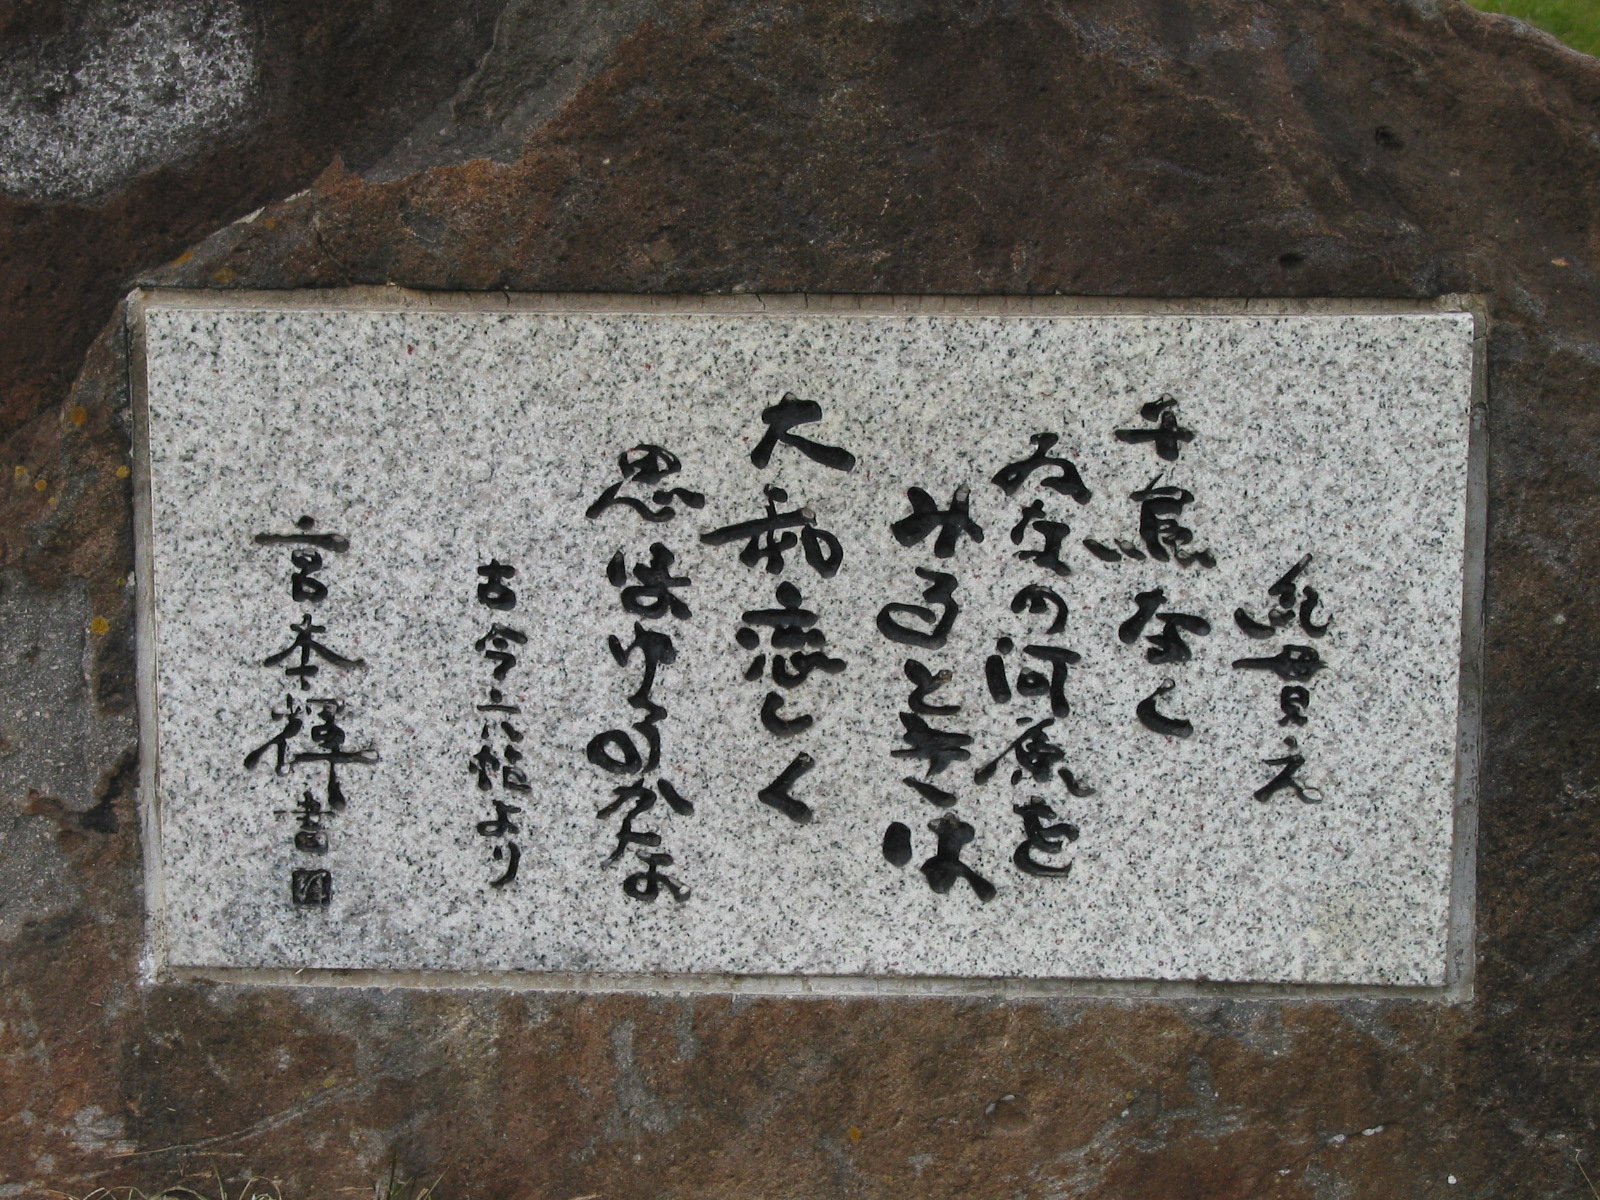 紀貫之
千鳥なく
ゐなの河原を
みるときは
大和恋しく
思ほゆるかな
古今六帖より
宮本輝書